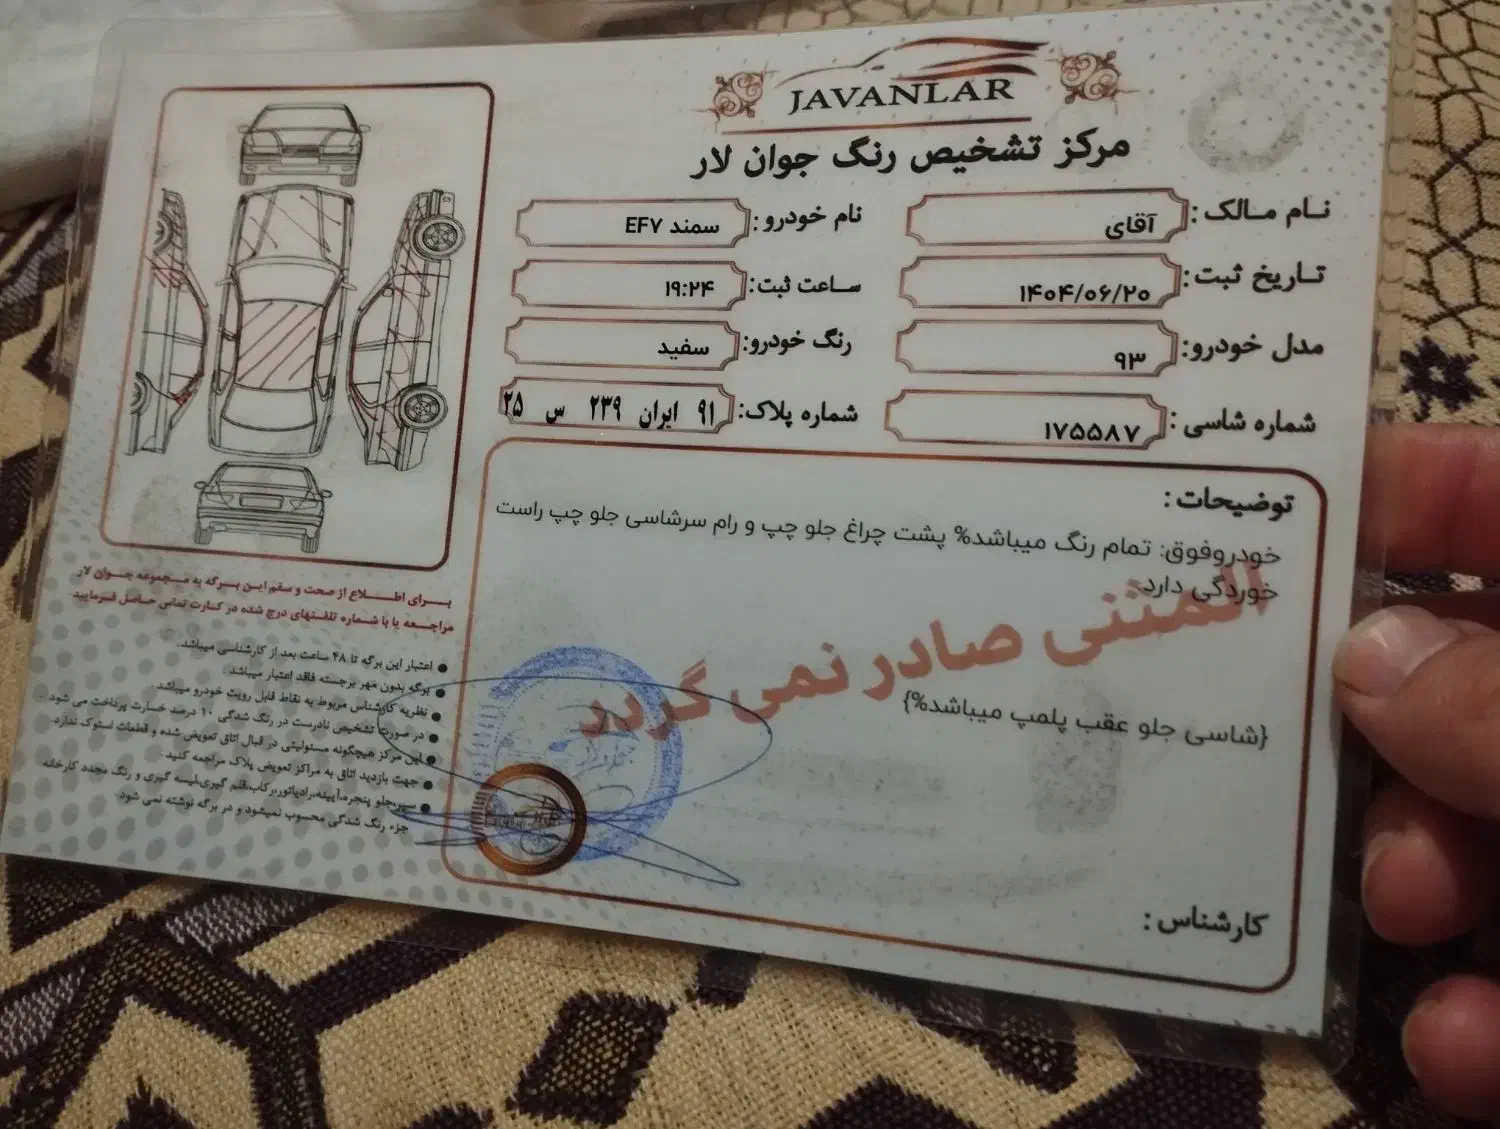 JAVANLAR
مرکز تشخیص رنگ جوان لار
نام مالک: آقای
نام خودرو: سمند EF۷
تاریخ ثبت: ۱۴۰۴/۰۶/۲۰
ساعت ثبت: ۱۹:۲۴
مدل خودرو: ۹۳
رنگ خودرو: سفید
شماره شاسی: ۱۷۵۵۸۷
شماره پلاک: ۹۱ ایران ۲۳۹ س ۲۵
توضیحات:
خودروفوق: تمام رنگ میباشد% پشت چراغ جلو چپ و رام سرشاسی جلو چپ راست
خوردگی دارد
المثنی صادر نمی گردد
{شاسی جلو عقب پلمپ میباشد%}
کارشناس:
برای اطلاع از صحت و سقم این برگه به مجموعه جوان لار
مراجعه یا با شماره تلفنهای درج شده در کارت تماس حاصل فرمایید
اعتبار این برگه تا ۴۸ ساعت بعد از کارشناسی میباشد.
برگه بدون مهر برجسته فاقد اعتبار میباشد.
نظریه کارشناس مربوط به نقاط قابل رویت خودرو میباشد
در صورت تشخیص نادرست در رنگ شدگی ۱۰ درصد خسارت پرداخت می شود.
این مرکز هیچگونه مسئولیتی در قبال اتاق تعویض شده و قطعات استوک ندارد.
جهت بازدید اتاق به مراکز تعویض پلاک مراجعه کنید.
سپر،جلو پنجره،آیینه،رادیاتور،رکاب،قلم گیری،لیسه گیری و رنگ مجدد کارخانه
جزء رنگ شدگی محسوب نمیشود و در برگه نوشته نمی شود.